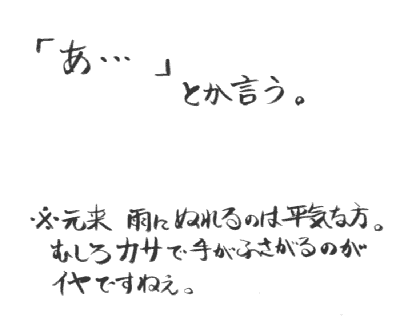 「あ… 」
とか言う。
※元来 雨にぬれるのは平気な方。
むしろカサで手がふさがるのが
イヤですねぇ。